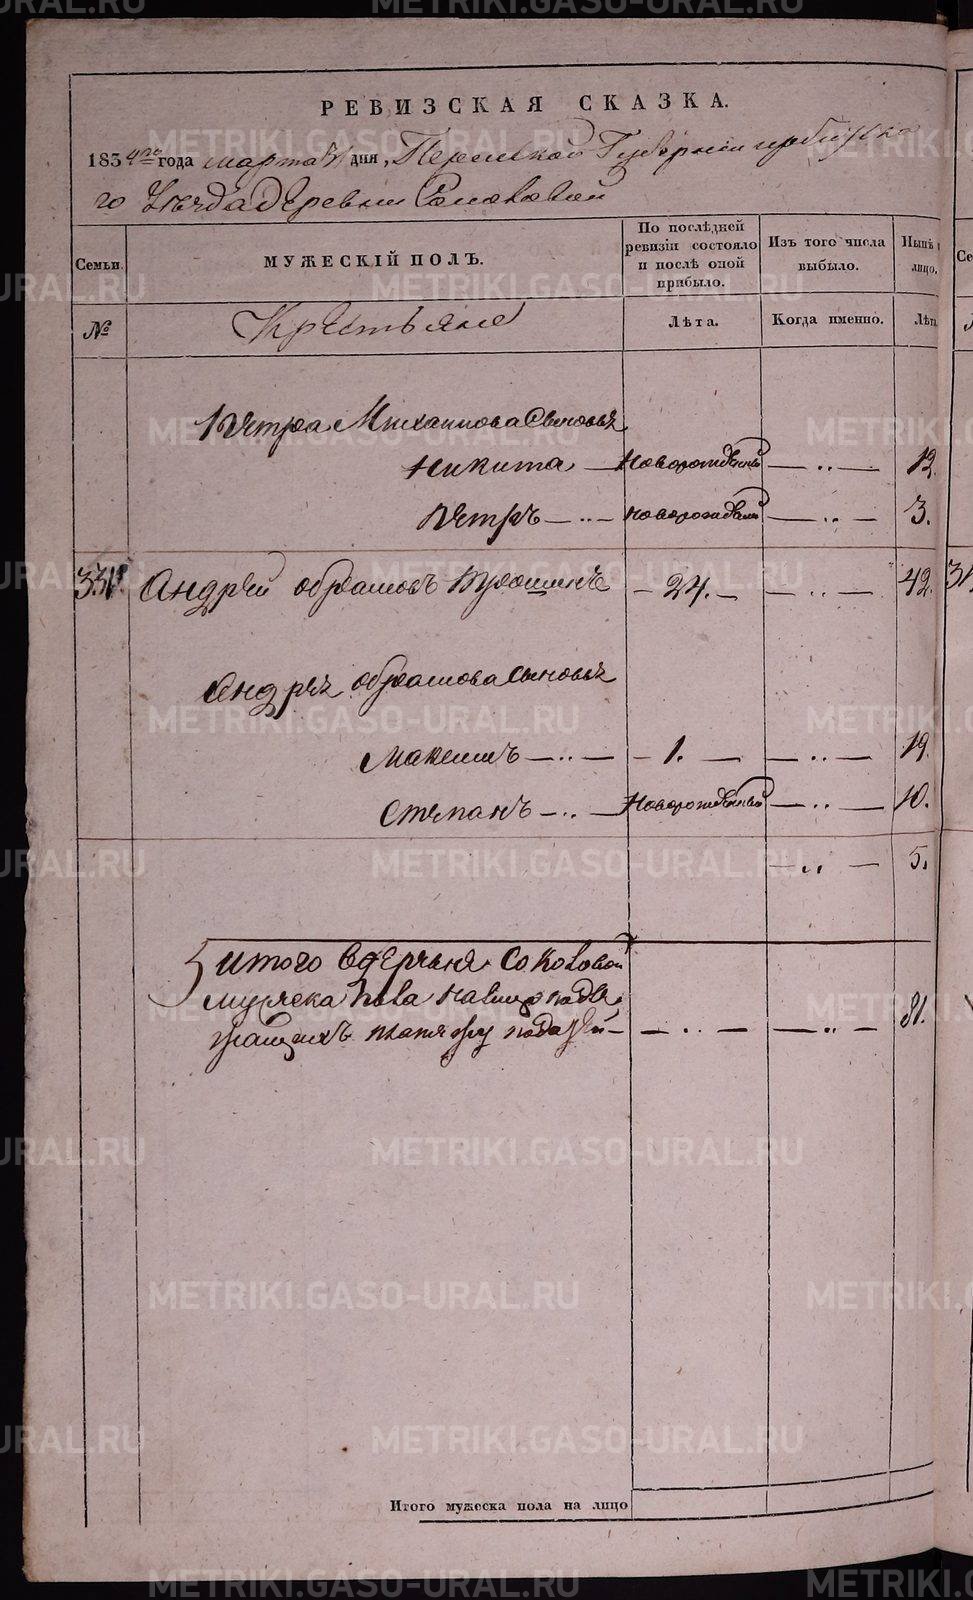 РЕВИЗСКАЯ СКАЗКА.
1834го года марта дня, Пермской Губернии Ирбитска
го Уезда деревни Соколовой
Семьи.
МУЖЕСКІЙ ПОЛЪ.
По послѣдней ревизіи состояло и послѣ оной прибыло.
Изъ того числа выбыло.
Нынѣ лицо.
№
Крестьяне
Лѣта.
Когда именно.
Лѣта
Петра Михаилова Сыновья
Никита — Новорожденный — „ — 12.
Петръ — „ — новорожденный — „ — 3.
Андрей Абрамовъ Трошинъ — 24. — — „ — 42.
Андрея Абрамова сыновья
Максимъ — „ — — 1. — — „ — 19.
Степанъ — „ — Новорожденный — „ — 10.
— „ — 5.
итого в деревне Соколовой
мужеска пола налицо подле
жащихъ платежу податей — — „ — — „ — 81.
Итого мужеска пола на лицо
METRIKI.GASO-URAL.RU